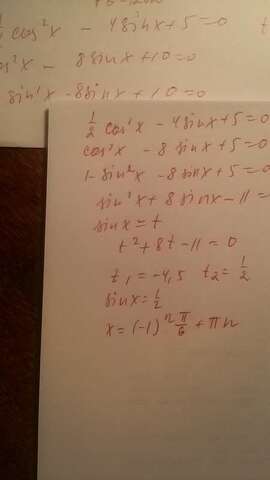 cos²x - 4sinx+5=0
cos²x - 8sinx+10=0
sin²x - 8sinx+10=0
1/2 cos²x - 4sinx+5=0
cos²x - 8sinx+5=0
1-sin²x - 8sinx+5=0
sin²x + 8sinx - 11 =
sinx=t
t²+8t-11=0
t₁=-4,5 t₂=1/2
sinx=1/2
x=(-1)ⁿ π/6 + πn